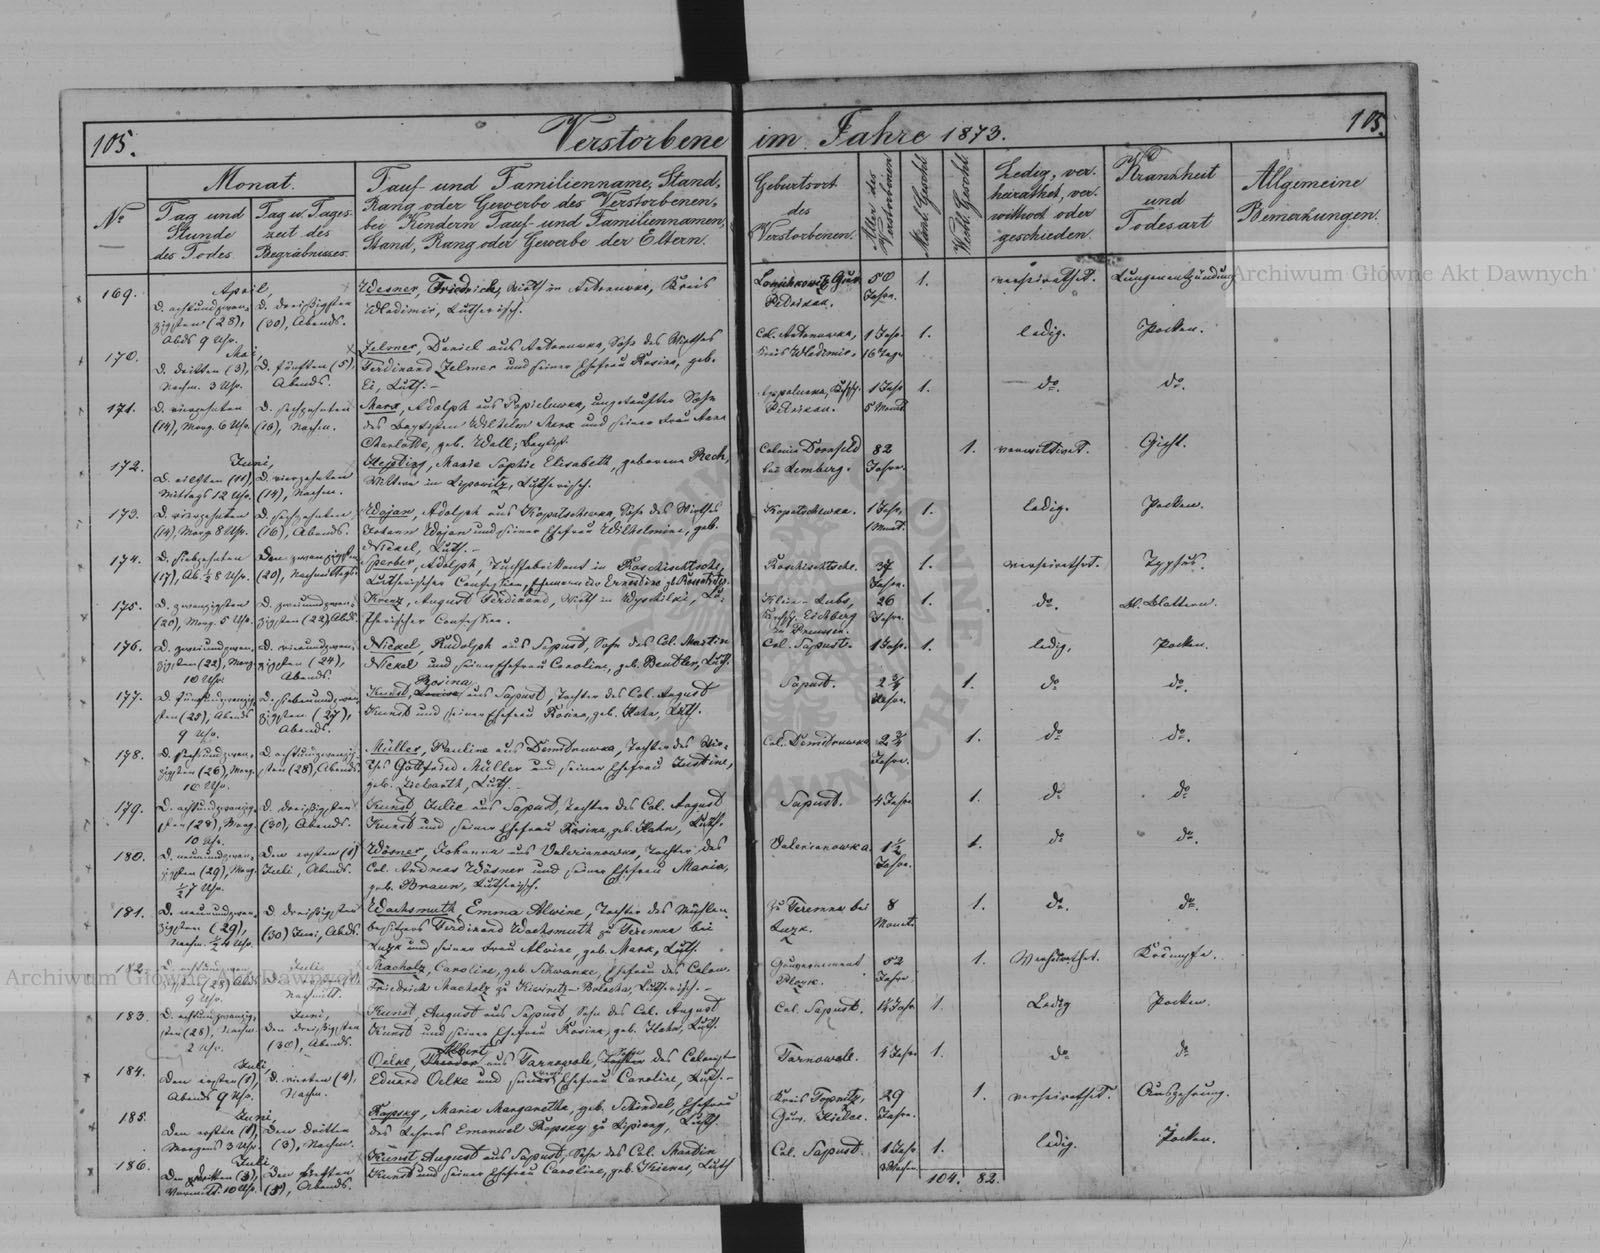 105.
Verstorbene im Jahre 1873.
105.
No
Monat.
Tag und Stunde des Todes.
Tag u. Tages-zeit des Begräbnisses.
Tauf- und Familienname, Stand,
Rang oder Gewerbe des Verstorbenen,
bei Kindern Tauf- und Familiennamen,
Stand, Rang oder Gewerbe der Eltern.
Geburtsort
des
Verstorbenen.
Alter des Verstorbenen
Männl. Geschl.
Weibl. Geschl.
Ledig, ver-
heirathet, ver-
wittwet oder
geschieden.
Krankheit
und
Todesart
Allgemeine
Bemerkungen.
169.
April,
D. achtundzwan-
zigsten (28),
Abds 9 Uhr.
D. dreißigsten
(30), Abends.
Wesner, Friedrich, Wirth in Antonuwka, Kreis
Wladimir, Lutherisch.
50
Jahre.
1.
verheirathet.
Lungenentzündung
170.
Mai,
D. dritten (3),
Nachm. 3 Uhr.
D. fünften (5),
Abends.
Zelmer, Daniel aus Antonuwka, Sohn des Wirthes
Ferdinand Zelmer und seiner Ehefrau Rosine, geb.
Ei, Luth. –
Col. Antonuwka,
Kreis Wladimir.
1 Jahr
16 Tage
1.
ledig.
Pocken.
171.
D. vierzehnten
(14), Morg. 6 Uhr.
D. sechzehnten
(16), Nachm.
Marx, Adolph aus Popielewka, ungetaufter Sohn
des Baptisten Wilhelm Marx und seiner Frau Anna
Charlotte, geb. Woll; Baptist.
1 Jahr
5 Monat
1.
do.
do.
172.
Juni,
D. eilften (11),
Mittags 12 Uhr.
D. vierzehnten
(14), Nachm.
Marie Sophie Elisabeth, geborene Rech,
Wittwe in Lipowitz, Lutherisch.
Colonie Dornfeld
bei Lemberg.
82
Jahre.
1.
verwittwet.
Gicht.
173.
D. vierzehnten
(14), Morg 8 Uhr.
D. sechzehnten
(16), Abends.
Wojan, Adolph aus Kopatschewka, Sohn des Wirthes
Johann Wojan und seiner Ehefrau Wilhelmine, geb.
Nickel, Luth. –
Kopatschewka.
1 Jahr
1 Monat.
1.
ledig.
Pocken.
174.
D. siebzehnten
(17), Ab. ½ 8 Uhr.
Den zwanzigsten
(20), Nachmittags.
Sperber, Adolph, Tuchfabrikant in Roschischtsche,
Lutherischer Confession, Ehemann der Ernestine
Roschischtsche.
37
Jahre.
1.
verheirathet.
Typhus.
175.
D. zwanzigsten
(20), Morg. 5 Uhr.
D. zweiundzwan-
zigsten (22), Abds.
Krenz, August Ferdinand, Wirth in Wyschilki, Lu-
therischer Confession.
Eichberg
in Preussen.
26
Jahre.
1.
do.
Blattern.
176.
D. zweiundzwan-
zigsten (22), Morg
10 Uhr.
D. vierundzwan-
zigsten (24),
Abends.
Nickel, Rudolph aus Sapust, Sohn des Col. Martin
Nickel und seiner Ehefrau Caroline, geb. Beutler, Luth.
Col. Sapust.
1 Jahr.
1.
ledig,
Pocken.
177.
D. fünfundzwanzig-
sten (25), Abends
9 Uhr.
D. siebenundzwan-
zigsten (27),
Abends.
Rosina
Kunst, aus Sapust, Tochter des Col. August
Kunst und seiner Ehefrau Rosine, geb. Hahn, Luth.
Sapust.
2 ¾
Jahre.
1.
do
do.
178.
D. sechsundzwan-
zigsten (26), Morg.
10 Uhr.
D. achtundzwanzig-
sten (28), Abends.
Müller, Pauline aus Demidruwka, Tochter des Wir-
thes Gottfried Müller und seiner Ehefrau Justine,
geb. Luth. –
Col. Demidruwka.
2 ¾
Jahre.
1.
do
do.
179.
D. achtundzwanzig-
sten (28), Morg.
10 Uhr.
D. dreißigsten
(30), Abends.
Kunst, Julie aus Sapust, Tochter des Col. August
Kunst und seiner Ehefrau Rosine, geb. Hahn, Luth.
Sapust.
4 Jahre
1.
do
do
180.
D. neunundzwan-
zigsten (29), Morg.
½ 7 Uhr.
Den ersten (1)
Juli, Abends.
Wösner, Johanna aus Valerianowka, Tochter des
Col. Andreas Wösner und seiner Ehefrau Maria,
geb. Braun, Lutherisch.
Valerianowka.
1 ½
Jahre.
1.
do
do.
181.
D. neunundzwan-
zigsten (29),
Nachm. ½ 4 Uhr.
D. dreißigsten
(30) Juni, Abends.
Wachsmuth, Emma Alwine, Tochter des Mühlen-
besitzers Ferdinand Wachsmuth zu Teremna bei
Luzk und seiner Frau Alwine, geb. Marx, Luth.
Zu Teremna bei
Luzk.
8
Monate
1.
do.
do.
182.
9 Uhr.
Juli
Nachmitt.
Macholz, Caroline, geb. Schwanke, Ehefrau des Colon.
Friedrich Macholz zu Lutherisch. –
Gouvernement
Plozk.
52
Jahre
1.
Verheirathet.
Krämpfe.
183.
D. achtundzwanzig-
sten (28), Nachm.
2 Uhr.
Juni,
Den dreißigsten
(30), Abends.
Kunst, August aus Sapust, Sohn des Col. August
Kunst und seiner Ehefrau Rosine, geb. Hahn, Luth.
Col. Sapust.
1.
Ledig
Pocken.
184.
Juli
Den ersten (1),
Abends 9 Uhr.
D. vierten (4),
Nachm.
Albert
Oelke, Theodor aus Tarnowole, des Colonist
Eduard Oelke und seiner Ehefrau Caroline, Luth. –
Tarnowole.
4 Jahre
1.
do
do
185.
Juni,
Den ersten (1),
Morgens 3 Uhr.
Den dritten
(3), Nachm.
Ropsky, Maria Margaretha, geb. Schindel, Ehefrau
des Lehrers Emanuel Ropsky zu Luth.
Gouv. Kielce.
29
Jahre.
1.
verheirathet.
Auszehrung.
186.
Juli
Den dritten (3),
Vormitt. 10 Uhr.
Den fünften
(5), Abends.
Kunst, August aus Sapust, Sohn des Col. Martin
Kunst und seiner Ehefrau Caroline, geb. Luth
Col. Sapust.
1 Jahr
1.
ledig.
Pocken.
104. 82.
Archiwum Główne Akt Dawnych
Archiwum Główne Akt Dawnych